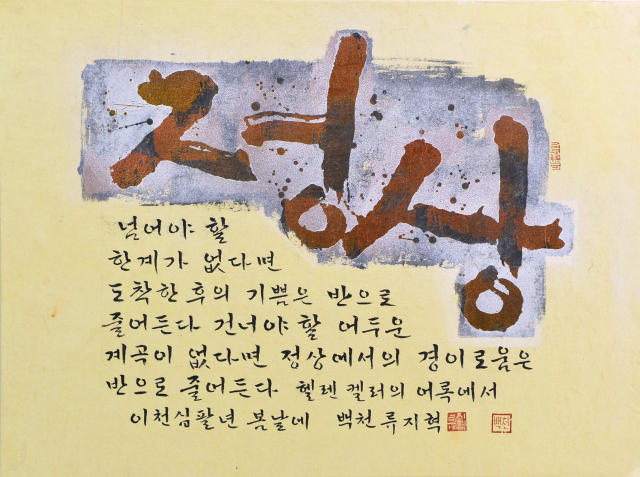 정상
넘어야 할
한계가 없다면
도착한 후의 기쁨은 반으로
줄어든다 건너야 할 어두운
계곡이 없다면 정상에서의 경이로움은
반으로 줄어든다 헬렌 켈러의 어록에서
이천십팔년 봄날에 백천 류지혁